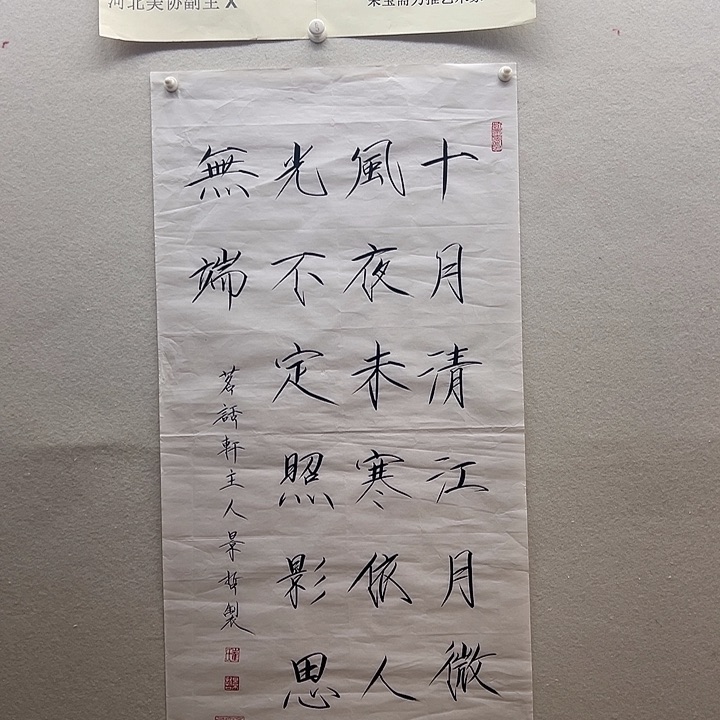 河北美协副主
十月清江月微
風夜未寒依人
光不定照影思
無端
茗話軒主人景哲製